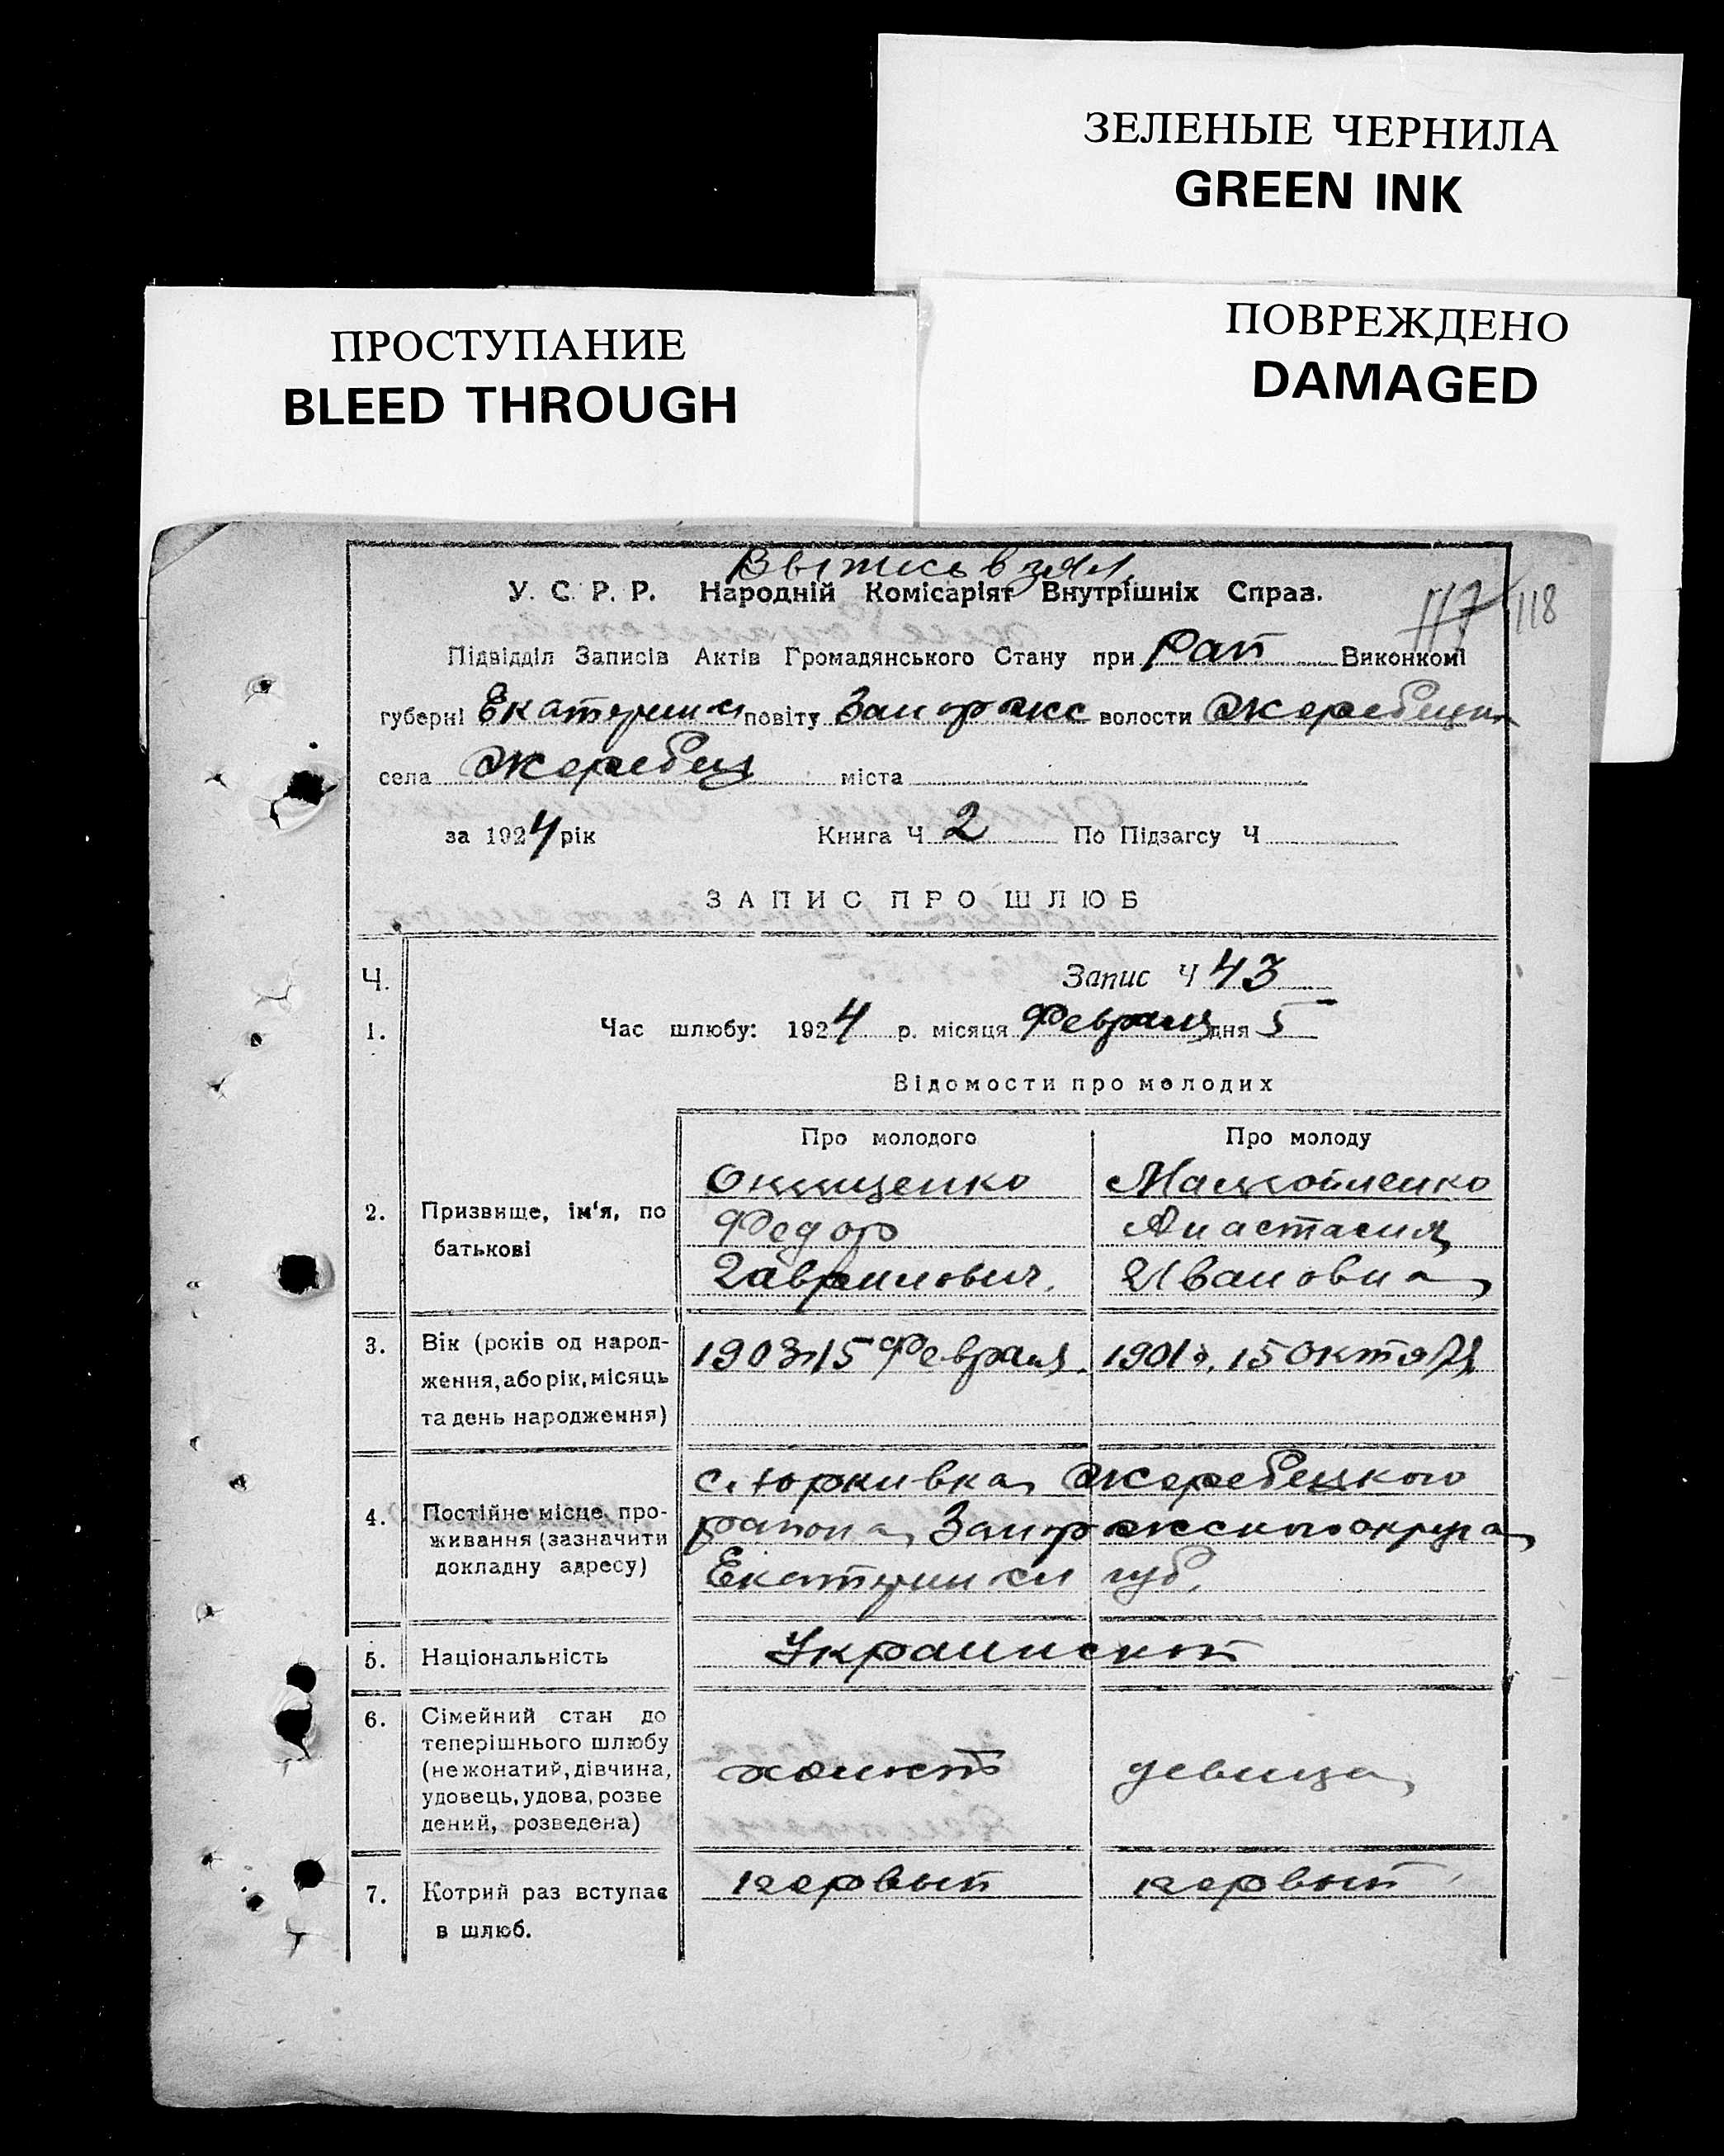 ЗЕЛЕНЫЕ ЧЕРНИЛА
GREEN INK
ПРОСТУПАНИЕ
BLEED THROUGH
ПОВРЕЖДЕНО
DAMAGED
Выпись взял
У. С. Р. Р. Народній Комісаріят Внутрішніх Справ.
117 118
Підвідділ Записів Актів Громадянського Стану при Рай Виконкомі
губерні Екатеринс повіту Запорожс волости Жеребецкой
села Жеребец міста
за 1924 рік Книга Ч 2 По Підзагсу Ч
ЗАПИС ПРО ШЛЮБ
Ч. Запис Ч 43
1. Час шлюбу: 1924 р. місяця Февраля дня 5
Відомости про молодих
Про молодого Про молоду
Онищенко
Федор Анастасия
2. Призвище, ім'я, по батькові
Гавриилович. Ивановна
3. Вік (років од народ-
ження, або рік, місяць
та день народження)
1903 15 Февраля. 1901 г. 15 Октяб
4. Постійне місце про-
живання (зазначити
докладну адресу)
с. Юркивка Жеребецкого
района Запорожского округа
Екатеринси губ.
5. Національність Украинской
6. Сімейний стан до
теперішнього шлюбу
(нежонатий, дівчина,
удовець, удова, розве
дений, розведена)
холост девица
7. Котрий раз вступає
в шлюб.
первый первый